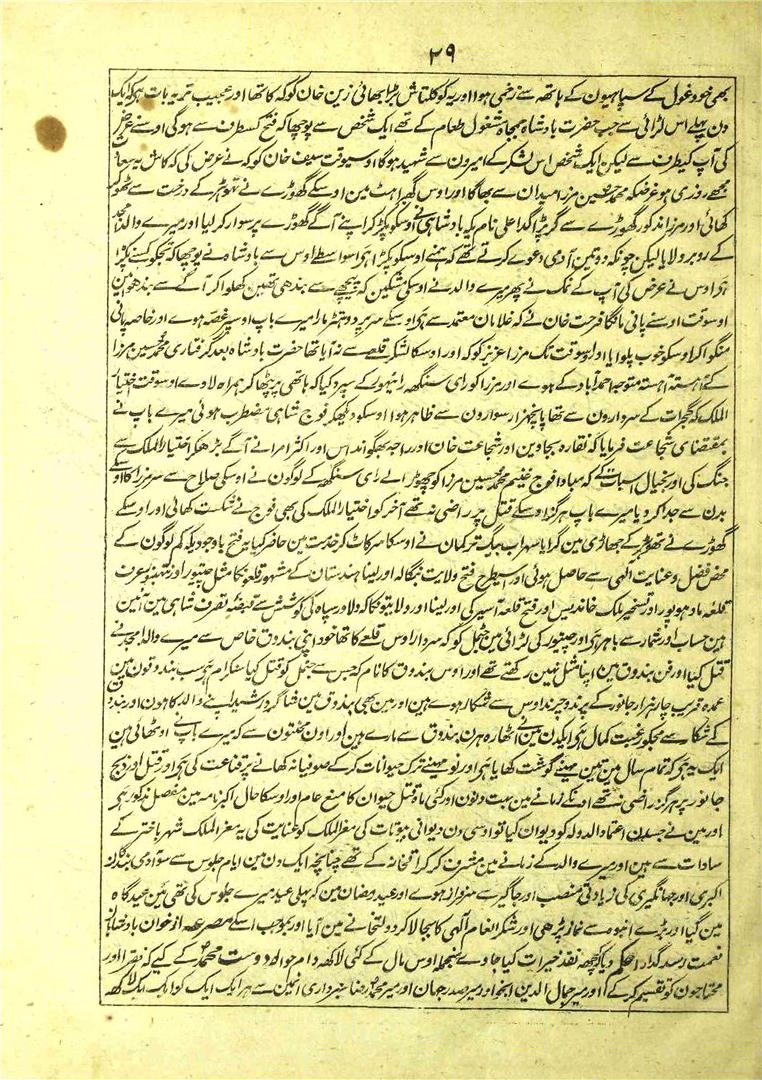 ۲۹
بھی خود غول کے سپاہیون کے ہاتھہ سے زخمی ہوا اور یہ کوکلتاش بڑا بھائی زین خان کوکہ کا تھا اور عجیب تر یہ بات ہی کہ ایک
دن پہلے اس لڑائی سے جب حضرت بادشاہ جمجاہ مشغول طعام کے تھے ایک شخص سے پوچھا کہ فتح کسطرف سے ہوگی اوسنے عرض
کی آپ کیطرف سے لیکن ایک شخص اس لشکر کے امیرون سے شہید ہوگا اوسیوقت سیف خان کوکہ نے عرض کی کہ کاش یہ سعادت
مجھے روزی ہو غرضکہ محمد حسین مرزا میدان سے بھاگا اور اوس گھبراہٹ مین اوسکے گھوڑے نے تھوہر کے درخت سے ٹھوکر
کھائی اور مرزا مذکور گھوڑے سے گر پڑا گدا علی نام یکہ بادشاہی نے اوسکو پکڑ کر اپنے آگے گھوڑے پر سوار کر لیا اور میرے والد ماجد
کے روبرو لایا لیکن چونکہ دو تین آدمی دعوے کرتے تھے کہ ہمنے اوسکو پکڑا ہی اسواسطے اوس سے بادشاہ نے پوچھا کہ تجکو کسنے پکڑا
ہی اوس نے عرض کی آپ کے نمک نے پھر میرے والد نے اوسکی مشکین کہ پیچھے سے بندھی تھین کھلوا کر آگے سے بندھوائین
اوسوقت اوسنے پانی مانگا فرحت خان نے کہ غلامان معتمد سے ہی اوسکے سر پر دوہتڑ مارا میرے باپ اوسپر غصہ ہوے اور خاصہ پانی
منگوا کر اوسکو خوب پلوایا اور اسوقت تک مرزا عزیز کوکہ اور اوسکا لشکر قلعے سے نہ آیا تھا حضرت بادشاہ بعد گرفتاری محمد حسین مرزا
کے آہستہ آہستہ متوجہ احمد آباد کے ہوے اور مرزا کو رای سنگھہ راٹھور کے سپرد کیا کہ ہاتھی پر بٹھا کر ہمراہ لاوے اوسوقت اختیار
الملک کہ گجرات کے سردارون سے تھا پانچہزار سوارون سے ظاہر ہوا اوسکو دیکھکر فوج شاہی مضطرب ہوئی میرے باپ نے
بمقتضای شجاعت فرمایا کہ نقارہ بجاوین اور شجاعت خان اور راجہ بھگونداس اور اکثر امرا نے آگے بڑھکر اختیار الملک سے
جنگ کی اور بخیال اسبات کے کہ مبادا فوج غنیم محمد حسین مرزا کو چھوڑا لے رای سنگھہ کے لوگون نے اوسکی صلاح سے سر مرزا کا اوسکے
بدن سے جدا کر دیا میرے باپ ہرگز اوسکے قتل پر راضی نہ تھے آخر کو اختیار الملک کی بھی فوج نے شکست کھائی اور اوسکے
گھوڑے نے تھوہر کے جھاڑی مین گرایا سہراب بیگ ترکمان نے اوسکا سر کاٹ کر خدمت مین حاضر کیا یہ فتح باوجودیکہ کم لوگون کے
محض فضل و عنایت الٰہی سے حاصل ہوئی اور اسیطرح فتح ولایت بنگالہ اور لینا ہندستان کے مشہور قلعون کا مثل چیتور اور رنتھنبور
قلعہ مادھوپور اور تسخیر ملک خاندیس اور فتح قلعہ آسیر کی اور لینا اور ولایتون کا کہ دلاور سپاہ کی کوشش سے قبضہ تصرف شاہی مین آئین
ہین حساب اور شمار سے باہر ہی اور چیتور کی لڑائی مین جیمل کو کہ سردار اوس قلعے کا تھا خود اپنی بندوق خاص سے میرے والد امجد نے
قتل کیا اور فن بندوق مین اپنا مثل نہین رکھتے تھے اور اوس بندوق کا نام کہ جس سے جیمل کو قتل کیا سنگرام ہی سب بندوقون مین
عمدہ قریب چار ہزار جانور کے پرند و چرند اوس سے شکار ہوے ہین اور مین بھی بندوق مین شاگرد رشید اپنے والد کا ہون اور بندوق
کے شکار سے مجکو رغبت کمال ہی ایکدن مین مینے اٹھارہ ہرن بندوق سے مارے ہین اور اون محنتون سے کہ میرے باپ نے اوٹھائی ہین
ایک یہ ہی کہ تمام سال مین تین مہینے گوشت کھایا ہی اور نو مہینے ترک حیوانات کر کے صوفیانہ کھانے پر قناعت کی ہی اور قتل اور ذبح
جانور پر ہرگز راضی نتھے اونکے زمانے مین بہت دنون اور کئی ماہ قتل حیوان کا منع عام اور اوسکا حال اکبرنامہ مین مفصل مذکور ہی
اور مین نے جسدن اعتماد الدولہ کو دیوان کیا تو اوسی دن دیوانی بیوتات کی معز الملک کو عنایت کی یہ معز الملک شہر باختر کے
سادات سے ہین اور میرے والد کے زمانے مین مشرف کرکراقخانہ کے تھے چنانچہ ایک دن مین ایام جلوس سے سو آدمی بندگان
اکبری اور جہانگیری کی زیادتی منصب اور جاگیر سے سرفراز ہوے اور عید رمضان مین کہ پہلی عید میرے جلوس کی تھی مین عیدگاہ
مین گیا اور بڑے انبوہ سے نماز پڑھی اور شکر انعام الٰہی کا بجا لا کر دولتخانے مین آیا اور بموجب اسکے مصرعہ از خوان بادشاہان
نعمت رسد گدا را حکم دیا کچھہ نقد خیرات کیا جاوے منجملہ اوس مال کے کئی لاکھہ دام حوالہ دوست محمد کے کیے کہ فقرا اور
محتاجون کو تقسیم کرے اور میر جمال الدین انجو اور میر صدر جہان اور میر محمد رضا سبزواری انمین سے ہر ایک کو ایک ایک لاکھہ